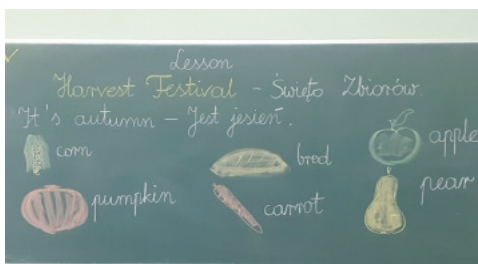 Lesson
Harvest Festival - Święto Zbiorów.
It's autumn - Jest jesień.
corn
bred
apple
pumpkin
carrot
pear